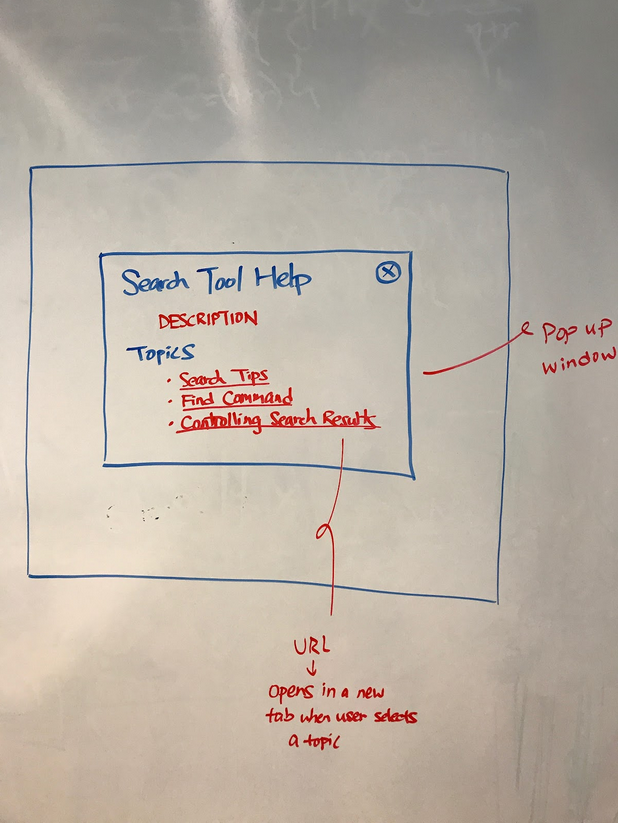 Search Tool Help
DESCRIPTION
TOPICS
• Search Tips
• Find Command
• Controlling Search Results
Pop up
window
URL
opens in a new
tab when user selects
a topic